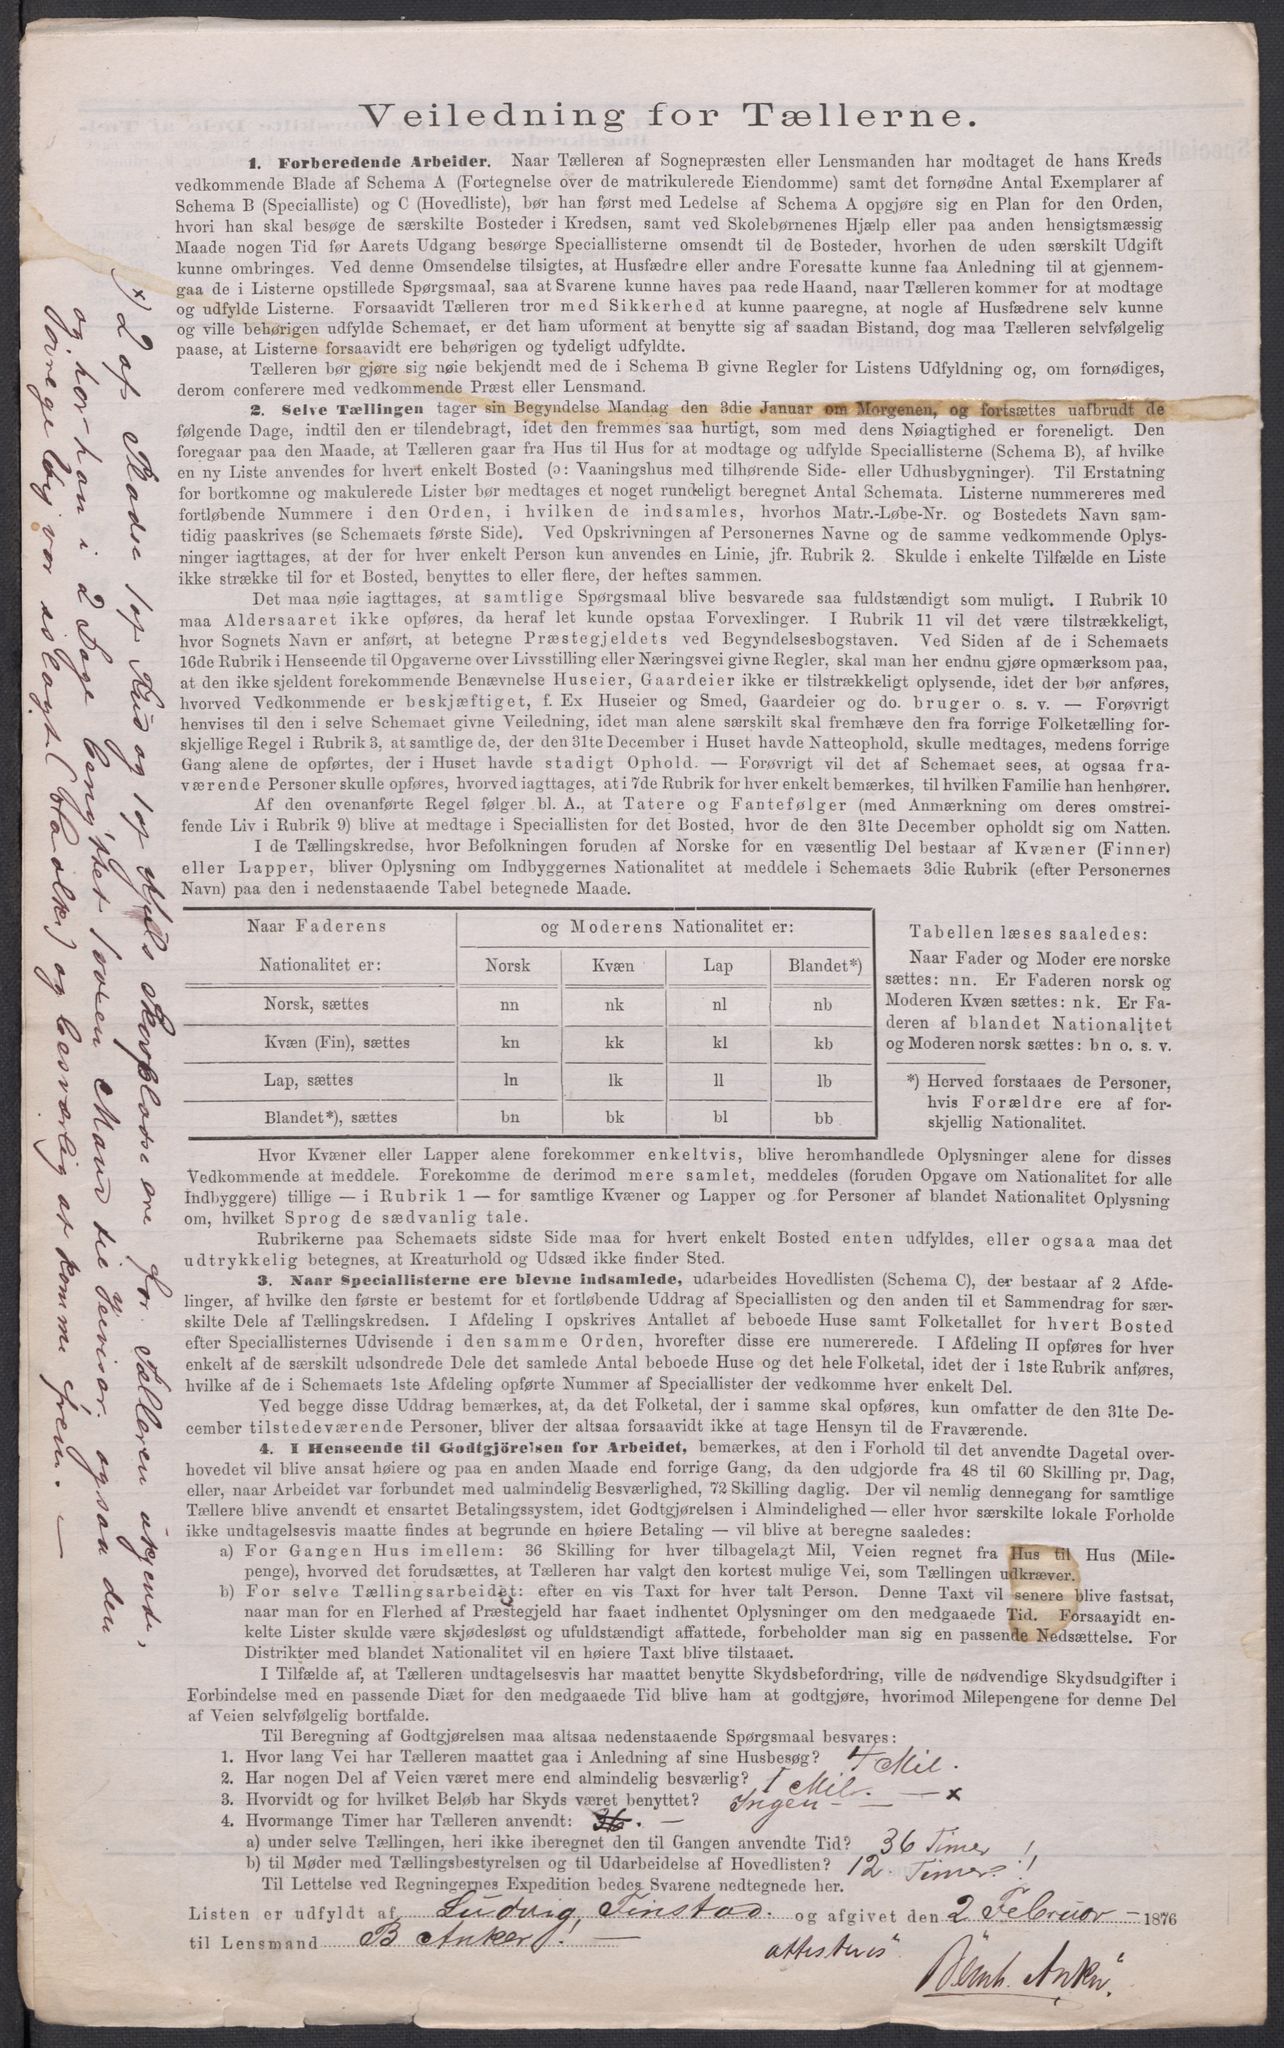 Veiledning for Tællerne.
1. Forberedende Arbeider. Naar Tælleren af Sognepræsten eller Lensmanden har modtaget de hans Kreds
vedkommende Blade af Schema A (Fortegnelse over de matrikulerede Eiendomme) samt det fornødne Antal Exemplarer af
Schema B (Specialliste) og C (Hovedliste), bør han først med Ledelse af Schema A opgjøre sig en Plan for den Orden,
hvori han skal besøge de særskilte Bosteder i Kredsen, samt ved Skolebørnenes Hjælp eller paa anden hensigtsmæssig
Maade nogen Tid før Aarets Udgang besørge Speciallisterne omsendt til de Bosteder, hvorhen de uden særskilt Udgift
kunne ombringes. Ved denne Omsendelse tilsigtes, at Husfædre eller andre Foresatte kunne faa Anledning til at gjennem-
gaa de i Listerne opstillede Spørgsmaal, saa at Svarene kunne haves paa rede Haand, naar Tælleren kommer for at modtage
og udfylde Listerne. Forsaavidt Tælleren tror med Sikkerhed at kunne paaregne, at nogle af Husfædrene selv kunne
og ville behørigen udfylde Schemaet, er det ham uforment at benytte sig af saadan Bistand, dog maa Tælleren selvfølgelig
paase, at Listerne forsaavidt ere behørigen og tydeligt udfyldte.
Tælleren bør gjøre sig nøie bekjendt med de i Schema B givne Regler for Listens Udfyldning og, om fornødiges,
derom conferere med vedkommende Præst eller Lensmand.
2. Selve Tællingen tager sin Begyndelse Mandag den 3die Januar om Morgenen, og fortsættes uafbrudt de
følgende Dage, indtil den er tilendebragt, idet den fremmes saa hurtigt, som med dens Nøiagtighed er foreneligt. Den
foregaar paa den Maade, at Tælleren gaar fra Hus til Hus for at modtage og udfylde Speciallisterne (Schema B), af hvilke
en ny Liste anvendes for hvert enkelt Bosted (ɔ: Vaaningshus med tilhørende Side- eller Udhusbygninger). Til Erstatning
for bortkomne og makulerede Lister bør medtages et noget rundeligt beregnet Antal Schemata. Listerne nummereres med
fortløbende Nummere i den Orden, i hvilken de indsamles, hvorhos Matr.-Løbe-Nr. og Bostedets Navn sam-
tidig paaskrives (se Schemaets første Side). Ved Opskrivningen af Personernes Navne og de samme vedkommende Oplys-
ninger iagttages, at der for hver enkelt Person kun anvendes en Linie, jfr. Rubrik 2. Skulde i enkelte Tilfælde en Liste
ikke strække til for et Bosted, benyttes to eller flere, der heftes sammen.
Det maa nøie iagttages, at samtlige Spørgsmaal blive besvarede saa fuldstændigt som muligt. I Rubrik 10
maa Aldersaaret ikke opføres, da heraf let kunde opstaa Forvexlinger. I Rubrik 11 vil det være tilstrækkeligt,
hvor Sognets Navn er anført, at betegne Præstegjeldets ved Begyndelsesbogstaven. Ved Siden af de i Schemaets
16de Rubrik i Henseende til Opgaverne over Livsstilling eller Næringsvei givne Regler, skal man her endnu gjøre opmærksom paa,
at den ikke sjeldent forekommende Benævnelse Huseier, Gaardeier ikke er tilstrækkeligt oplysende, idet der bør anføres,
hvorved Vedkommende er beskjæftiget, f. Ex Huseier og Smed, Gaardeier og do. bruger o. s. v. — Forøvrigt
henvises til den i selve Schemaet givne Veiledning, idet man alene særskilt skal fremhæve den fra forrige Folketælling for-
skjellige Regel i Rubrik 3, at samtlige de, der den 31te December i Huset havde Natteophold, skulle medtages, medens forrige
Gang alene de opførtes, der i Huset havde stadigt Ophold. — Forøvrigt vil det af Schemaet sees, at ogsaa fra-
værende Personer skulle opføres, hvorved iagttages, at i 7de Rubrik for hver enkelt bemærkes, til hvilken Familie han henhører.
Af den ovenanførte Regel følger bl. A., at Tatere og Fantefølger (med Anmærkning om deres omstrei-
fende Liv i Rubrik 9) blive at medtage i Speciallisten for det Bosted, hvor de den 31te December opholdt sig om Natten.
I de Tællingskredse, hvor Befolkningen foruden af Norske for en væsentlig Del bestaar af Kvæner (Finner)
eller Lapper, bliver Oplysning om Indbyggernes Nationalitet at meddele i Schemaets 3die Rubrik (efter Personernes
Navn) paa den i nedenstaaende Tabel betegnede Maade.
Naar Faderens og Moderens Nationalitet er:
Nationalitet er: Norsk Kvæn Lap Blandet*)
Norsk, sættes nn nk nl nb
Kvæn (Fin), sættes kn kk kl kb
Lap, sættes ln lk ll lb
Blandet*), sættes bn bk bl bb
Tabellen læses saaledes:
Naar Fader og Moder ere norske
sættes: nn. Er Faderen norsk og
Moderen Kvæn sættes: nk. Er Fa-
deren af blandet Nationalitet
og Moderen norsk sættes: bn o. s. v.
*) Herved forstaaes de Personer,
hvis Forældre ere af for-
skjellig Nationalitet.
Hvor Kvæner eller Lapper alene forekommer enkeltvis, blive heromhandlede Oplysninger alene for disses
Vedkommende at meddele. Forekomme de derimod mere samlet, meddeles (foruden Opgave om Nationalitet for alle
Indbyggere) tillige — i Rubrik 1 — for samtlige Kvæner og Lapper og for Personer af blandet Nationalitet Oplysning
om, hvilket Sprog de sædvanlig tale.
Rubrikerne paa Schemaets sidste Side maa for hvert enkelt Bosted enten udfyldes, eller ogsaa maa det
udtrykkelig betegnes, at Kreaturhold og Udsæd ikke finder Sted.
3. Naar Speciallisterne ere blevne indsamlede, udarbeides Hovedlisten (Schema C), der bestaar af 2 Afde-
linger, af hvilke den første er bestemt for et fortløbende Uddrag af Speciallisten og den anden til et Sammendrag for sær-
skilte Dele af Tællingskredsen. I Afdeling I opskrives Antallet af beboede Huse samt Folketallet for hvert Bosted
efter Speciallisternes Udvisende i den samme Orden, hvorefter disse ere numererede. I Afdeling II opføres for hver
enkelt af de særskilt udsondrede Dele det samlede Antal beboede Huse og det hele Folketal, idet der i 1ste Rubrik anføres,
hvilke af de i Schemaets 1ste Afdeling opførte Nummer af Speciallister der vedkomme hver enkelt Del.
Ved begge disse Uddrag bemærkes, at, da det Folketal, der i samme skal opføres, kun omfatter de den 31te De-
cember tilstedeværende Personer, bliver der altsaa forsaavidt ikke at tage Hensyn til de Fraværende.
4. I Henseende til Godtgjörelsen for Arbeidet, bemærkes, at den i Forhold til det anvendte Dagetal over-
hovedet vil blive ansat høiere og paa en anden Maade end forrige Gang, da den udgjorde fra 48 til 60 Skilling pr. Dag,
eller, naar Arbeidet var forbundet med ualmindelig Besværlighed, 72 Skilling daglig. Der vil nemlig dennegang for samtlige
Tællere blive anvendt et ensartet Betalingssystem, idet Godtgjørelsen i Almindelighed — eller hvor særskilte lokale Forholde
ikke undtagelsesvis maatte findes at begrunde en høiere Betaling — vil blive at beregne saaledes:
a) For Gangen Hus imellem: 36 Skilling for hver tilbagelagt Mil, Veien regnet fra Hus til Hus (Mile-
penge), hvorved det forudsættes, at Tælleren har valgt den kortest mulige Vei, som Tællingen udkræver.
b) For selve Tællingsarbeidet: efter en vis Taxt for hver talt Person. Denne Taxt vil senere blive fastsat,
naar man for en Flerhed af Præstegjeld har faaet indhentet Oplysninger om den medgaaede Tid. Forsaavidt en-
kelte Lister skulde være skjødesløst og ufuldstændigt affattede, forbeholder man sig en passende Nedsættelse. For
Distrikter med blandet Nationalitet vil en høiere Taxt blive tilstaaet.
I Tilfælde af, at Tælleren undtagelsesvis har maattet benytte Skydsbefordring, ville de nødvendige Skydsudgifter i
Forbindelse med en passende Diæt for den medgaaede Tid blive ham at godtgjøre, hvorimod Milepengene for denne Del
af Veien selvfølgelig bortfalde.
Til Beregning af Godtgjørelsen maa altsaa nedenstaaende Spørgsmaal besvares:
1. Hvor lang Vei har Tælleren maattet gaa i Anledning af sine Husbesøg? 4 Mil.
2. Har nogen Del af Veien været mere end almindelig besværlig? 1 Mil. — x
3. Hvorvidt og for hvilket Beløb har Skyds været benyttet? Ingen —
4. Hvormange Timer har Tælleren anvendt: 36. —
a) under selve Tællingen, heri ikke iberegnet den til Gangen anvendte Tid? 36 Timer!
b) til Møder med Tællingsbestyrelsen og til Udarbeidelse af Hovedlisten? 12 Timer!
Til Lettelse ved Regningernes Expedition bedes Svarene nedtegnede her.
Listen er udfyldt af Ludvig Finstad. og afgivet den 2 Februar — 1876
til Lensmand B Anker. —
attesteres
Bernh. Anker.
x) 2 af Pladse 1 af Rud og 1 af Skovpladse ere for Tælleren ukjendte,
og har han i 2 Dage benyttet 1 voxen Mand til ogsaa den
var og besværlig at komme frem. —